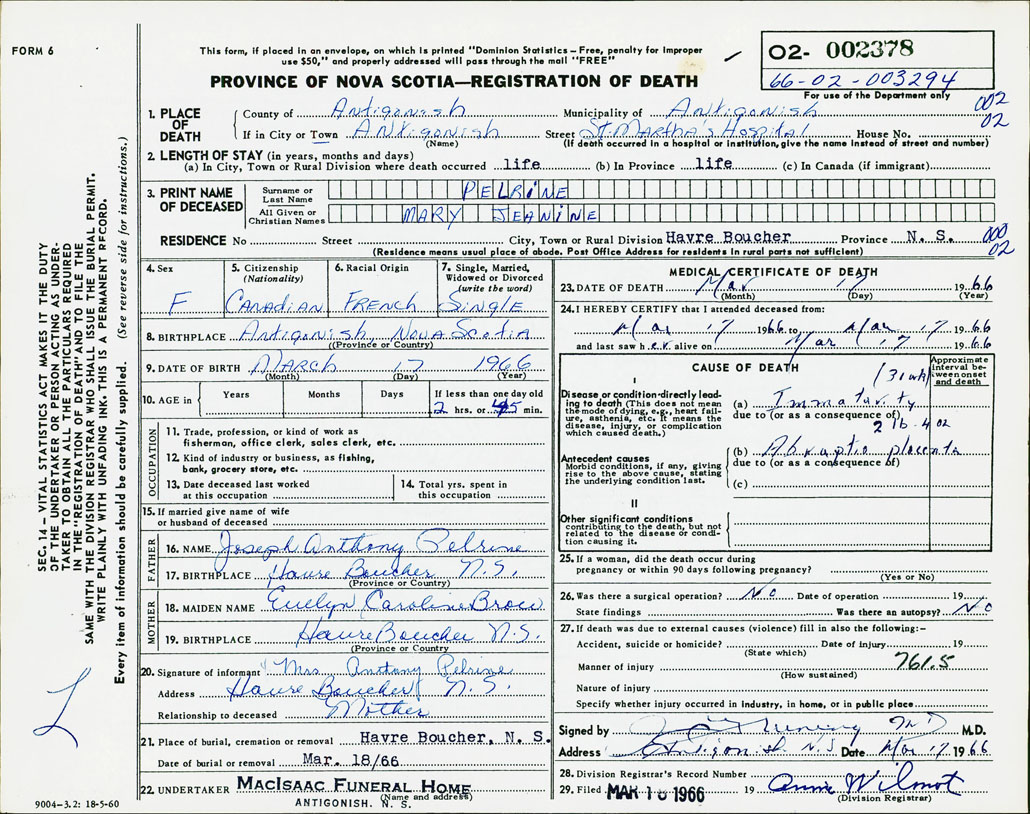 FORM 6
This form, if placed in an envelope, on which is printed "Dominion Statistics – Free, penalty for improper
use $50," and properly addressed will pass through the mail "FREE"
PROVINCE OF NOVA SCOTIA—REGISTRATION OF DEATH
02- 002378
66-02-003294
For use of the Department only
002
02
1. PLACE OF DEATH
County of Antigonish Municipality of Antigonish
If in City or Town Antigonish Street St. Martha's Hospital House No.
(Name) (If death occurred in a hospital or institution, give the name instead of street and number)
2. LENGTH OF STAY (in years, months and days)
(a) In City, Town or Rural Division where death occurred life (b) In Province life (c) In Canada (if immigrant)
3. PRINT NAME OF DECEASED
Surname or Last Name PELRINE
All Given or Christian Names MARY JEANINE
RESIDENCE No Street City, Town or Rural Division Havre Boucher Province N. S.
000
02
(Residence means usual place of abode. Post Office Address for residents in rural parts not sufficient)
4. Sex F
5. Citizenship (Nationality) Canadian
6. Racial Origin French
7. Single, Married, Widowed or Divorced (write the word) Single
8. BIRTHPLACE Antigonish, Nova Scotia
(Province or Country)
9. DATE OF BIRTH March 17 1966
(Month) (Day) (Year)
10. AGE in Years Months Days If less than one day old
2 hrs. or 45 min.
OCCUPATION
11. Trade, profession, or kind of work as
fisherman, office clerk, sales clerk, etc.
12. Kind of industry or business, as fishing,
bank, grocery store, etc.
13. Date deceased last worked
at this occupation
14. Total yrs. spent in
this occupation
15. If married give name of wife
or husband of deceased
FATHER
16. NAME Joseph Anthony Pelrine
17. BIRTHPLACE Havre Boucher N.S.
(Province or Country)
MOTHER
18. MAIDEN NAME Evelyn Caroline Brow
19. BIRTHPLACE Havre Boucher N.S.
(Province or Country
20. Signature of informant Mrs Anthony Pelrine
Address Havre Boucher N.S.
Relationship to deceased Mother
21. Place of burial, cremation or removal Havre Boucher, N. S.
Date of burial or removal Mar. 18/66
22. UNDERTAKER MacIsaac Funeral Home
(Name and address)
ANTIGONISH. N. S.
MEDICAL CERTIFICATE OF DEATH
23. DATE OF DEATH Mar 17 1966
(Month) (Day) (Year)
24. I HEREBY CERTIFY that I attended deceased from:
Mar 17 1966 to Mar 17 1966
and last saw her alive on Mar 17 1966
CAUSE OF DEATH
Approximate interval between onset and death
I
Disease or condition directly leading to death (This does not mean the mode of dying, e.g., heart failure, asthenia, etc. It means the disease, injury, or complication which caused death.)
(31 wk)
(a) Immaturity
due to (or as a consequence of)
2 lb - 4 oz
Antecedent causes
Morbid conditions, if any, giving rise to the above cause, stating the underlying condition last.
(b) Abruptio placenta
due to (or as a consequence of)
(c)
II
Other significant conditions
contributing to the death, but not related to the disease or condition causing it.
25. If a woman, did the death occur during
pregnancy or within 90 days following pregnancy?
(Yes or No)
26. Was there a surgical operation? No Date of operation 19
State findings Was there an autopsy? No
27. If death was due to external causes (violence) fill in also the following:-
Accident, suicide or homicide? Date of injury 19
(State which)
Manner of injury 761.5
(How sustained)
Nature of injury
Specify whether injury occurred in industry, in home, or in public place
Signed by MD M.D.
Address Antigonish N.S. Date Mar 17 1966
28. Division Registrar's Record Number
29. Filed MAR 18 1966 19 Annie Wilmot
(Division Registrar)
SEC. 14 – VITAL STATISTICS ACT MAKES IT THE DUTY
OF THE UNDERTAKER OR PERSON ACTING AS UNDER-
TAKER TO OBTAIN ALL THE PARTICULARS REQUIRED
IN THE "REGISTRATION OF DEATH" AND TO FILE THE
SAME WITH THE DIVISION REGISTRAR WHO SHALL ISSUE THE BURIAL PERMIT.
WRITE PLAINLY WITH UNFADING INK. THIS IS A PERMANENT RECORD.
Every item of information should be carefully supplied. (See reverse side for instructions.)
L
9004-3.2: 18-5-60